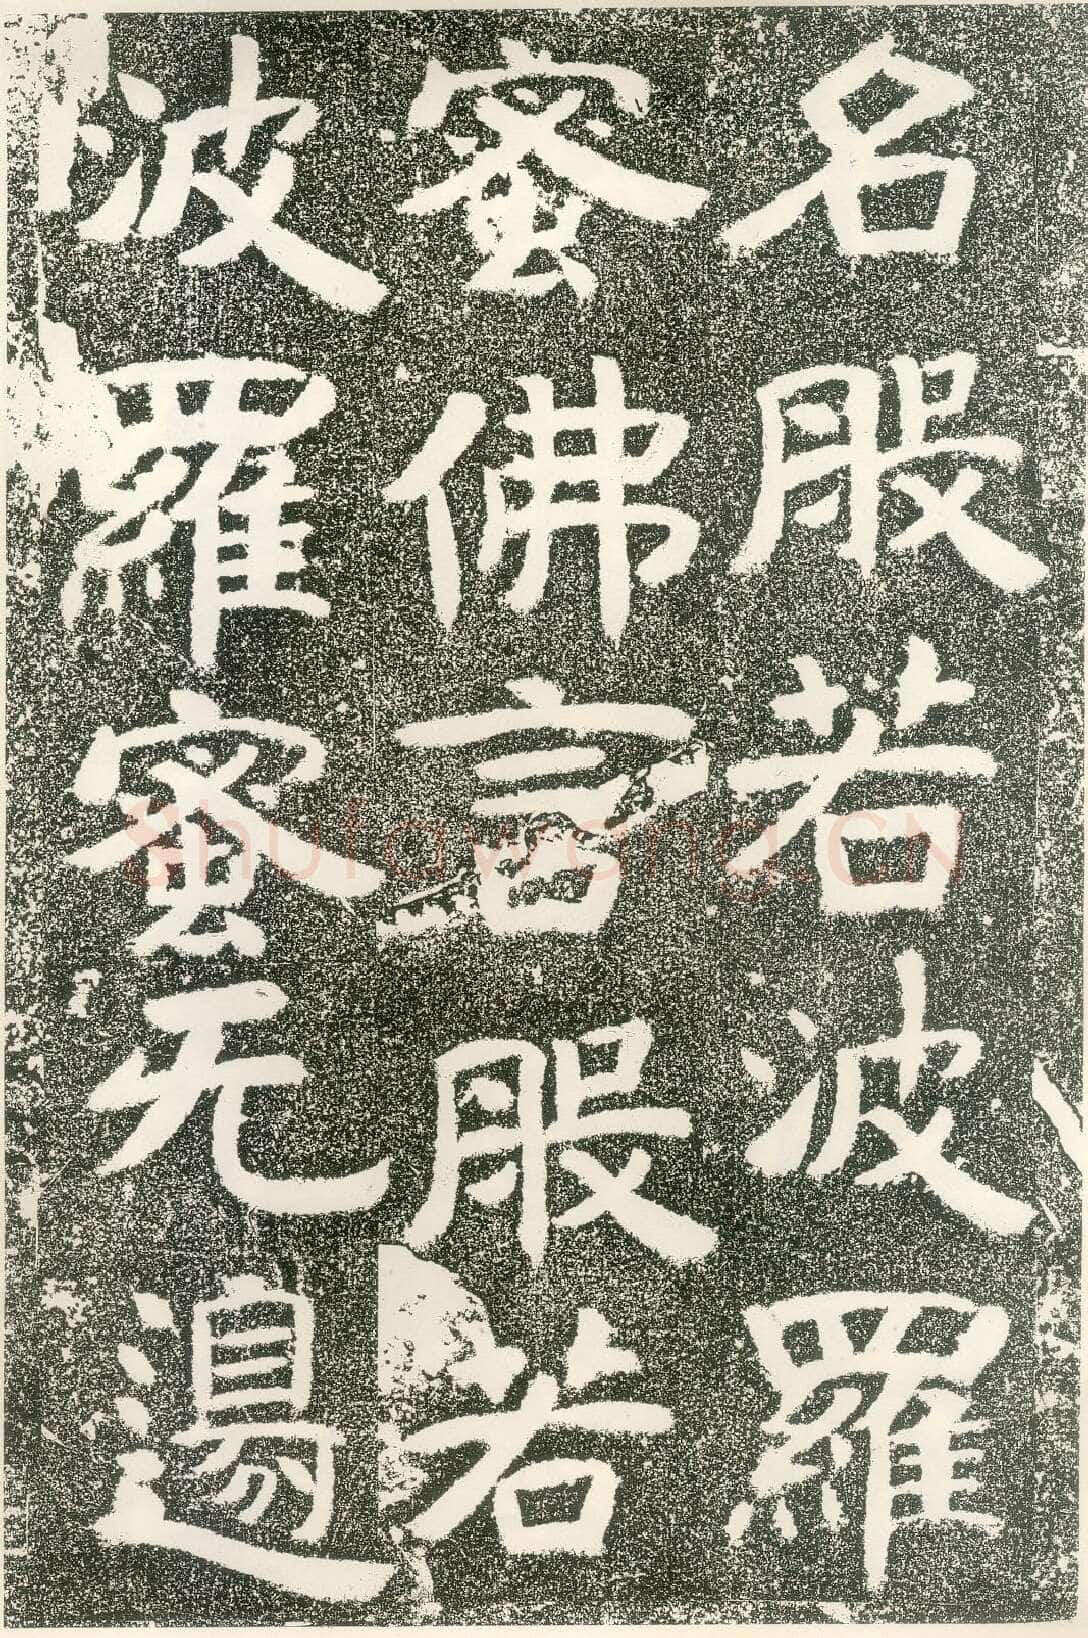 名般若波羅
蜜佛言般若
波羅蜜无邊
Shufawang.CN